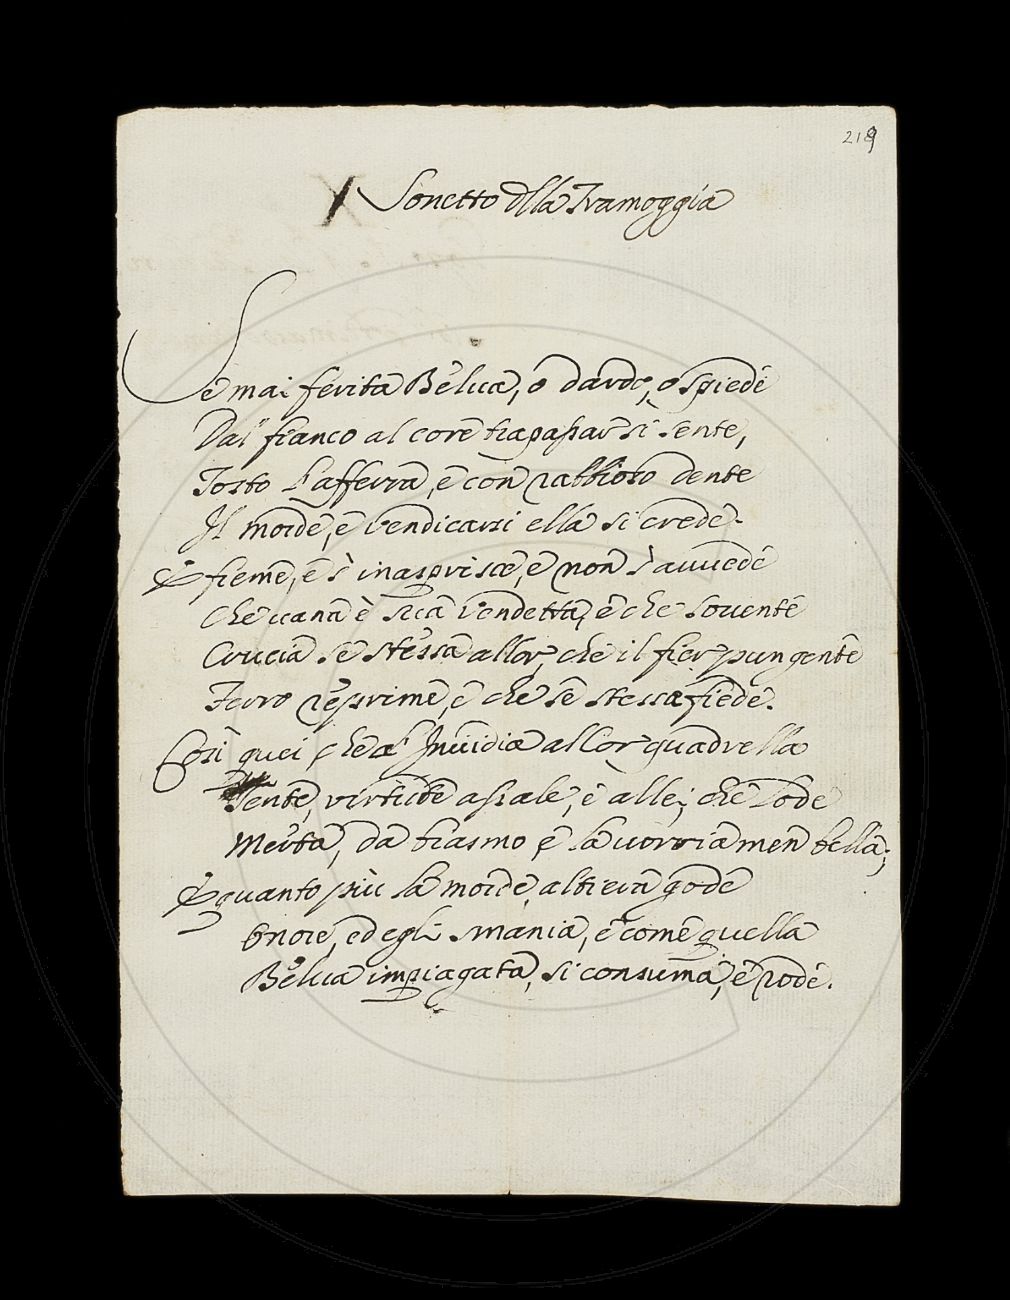 219
Sonetto dlla Tramoggia
Se mai ferita Belua, o dardo, o spiede
Dal fianco al core trapassar si sente,
Tosto l'afferra, e con rabbioso dente
Il morde, e vendicarsi ella si crede.
E freme, e s'inasprisce, e non s'avvede
Che vana è sua vendetta, e che sovente
Crucia se stessa allor, che il fier pungente
Ferro reprime, e che se stessa fiede.
Così quei, che d'Invidia al Cor quadrella
Sente, virtute assale, e a lei, che Lode
Merta, da biasmo e la vorria men bella;
E quanto più la morde, altiera gode
Onore, ed egli smania, e come quella
Belua impiagata, si consuma, e rode.